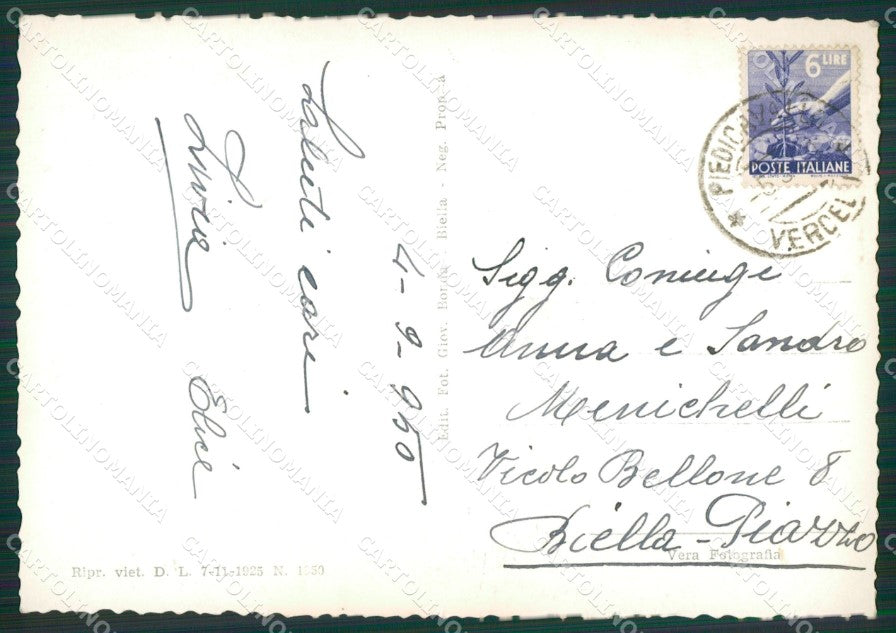 Saluti cari
Livia Elice
4-9-950
Edit. Fot. Giov. Biella - Neg. Propr. à
6 LIRE
POSTE ITALIANE
PIEDICAVALLO
* VERCELLI
Sigg. Coniugi
Anna e Sandro
Menichelli
Vicolo Bellone 8
Biella-Piazzo
Vera Fotografia
Ripr. viet. D. L. 7-11-1925 N. 1950
CARTOLINOMANIA